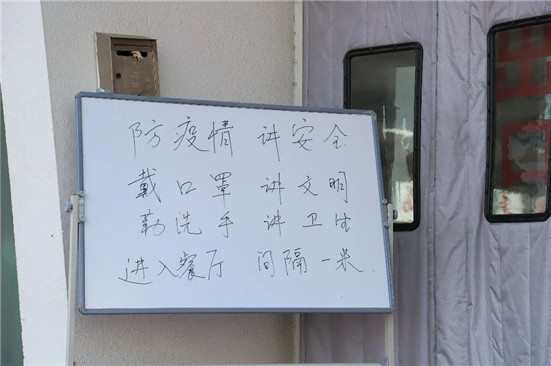 防疫情 讲安全
戴口罩 讲文明
勤洗手 讲卫生
进入餐厅 间隔一米